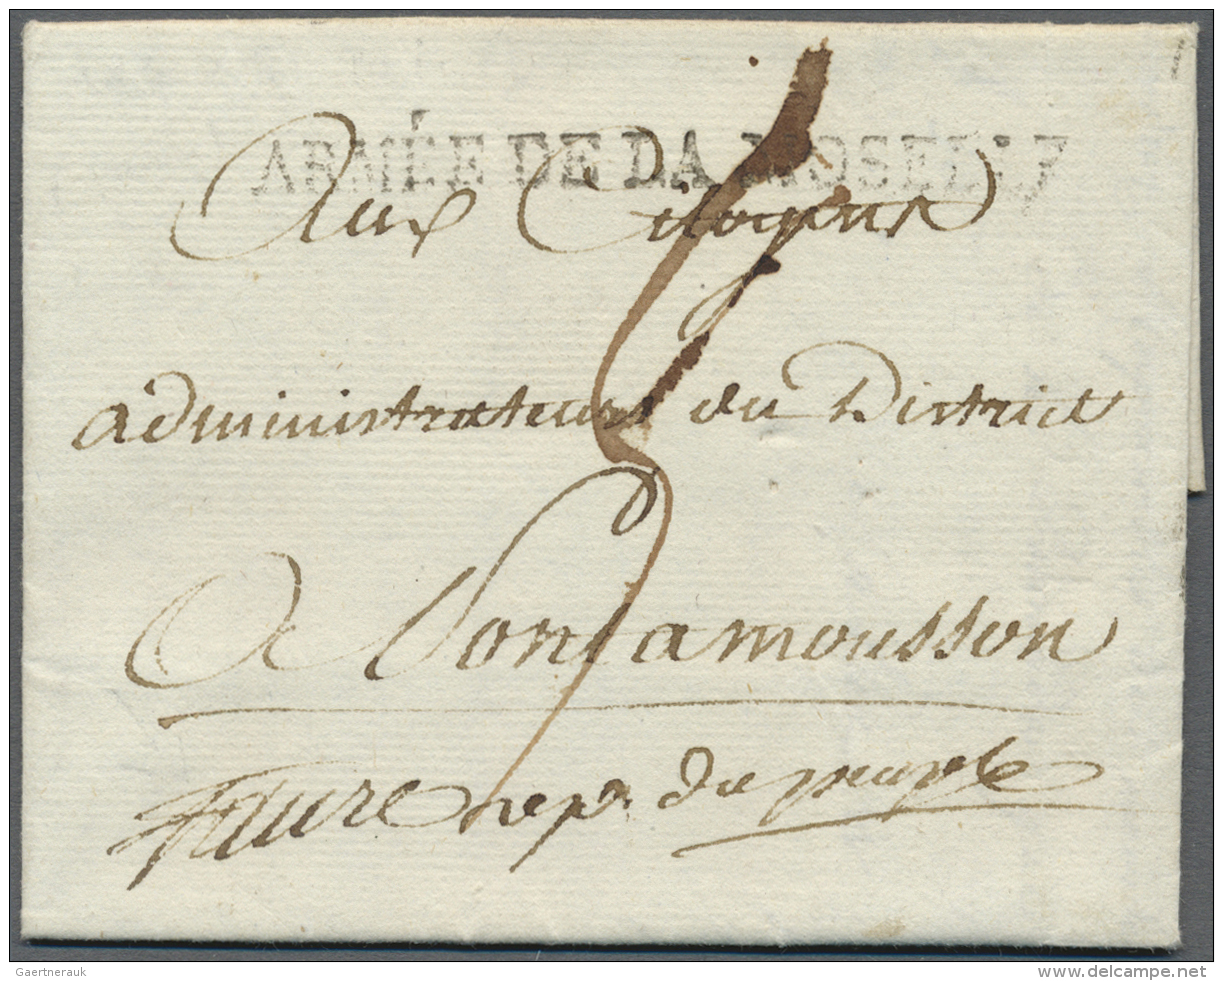 ARMÉE DE LA MOSELLE
Aux Citoyens
administrateurs du District
A Pontamousson
Faure rep. du peuple
Gaertnerauk
my.delcampe.net